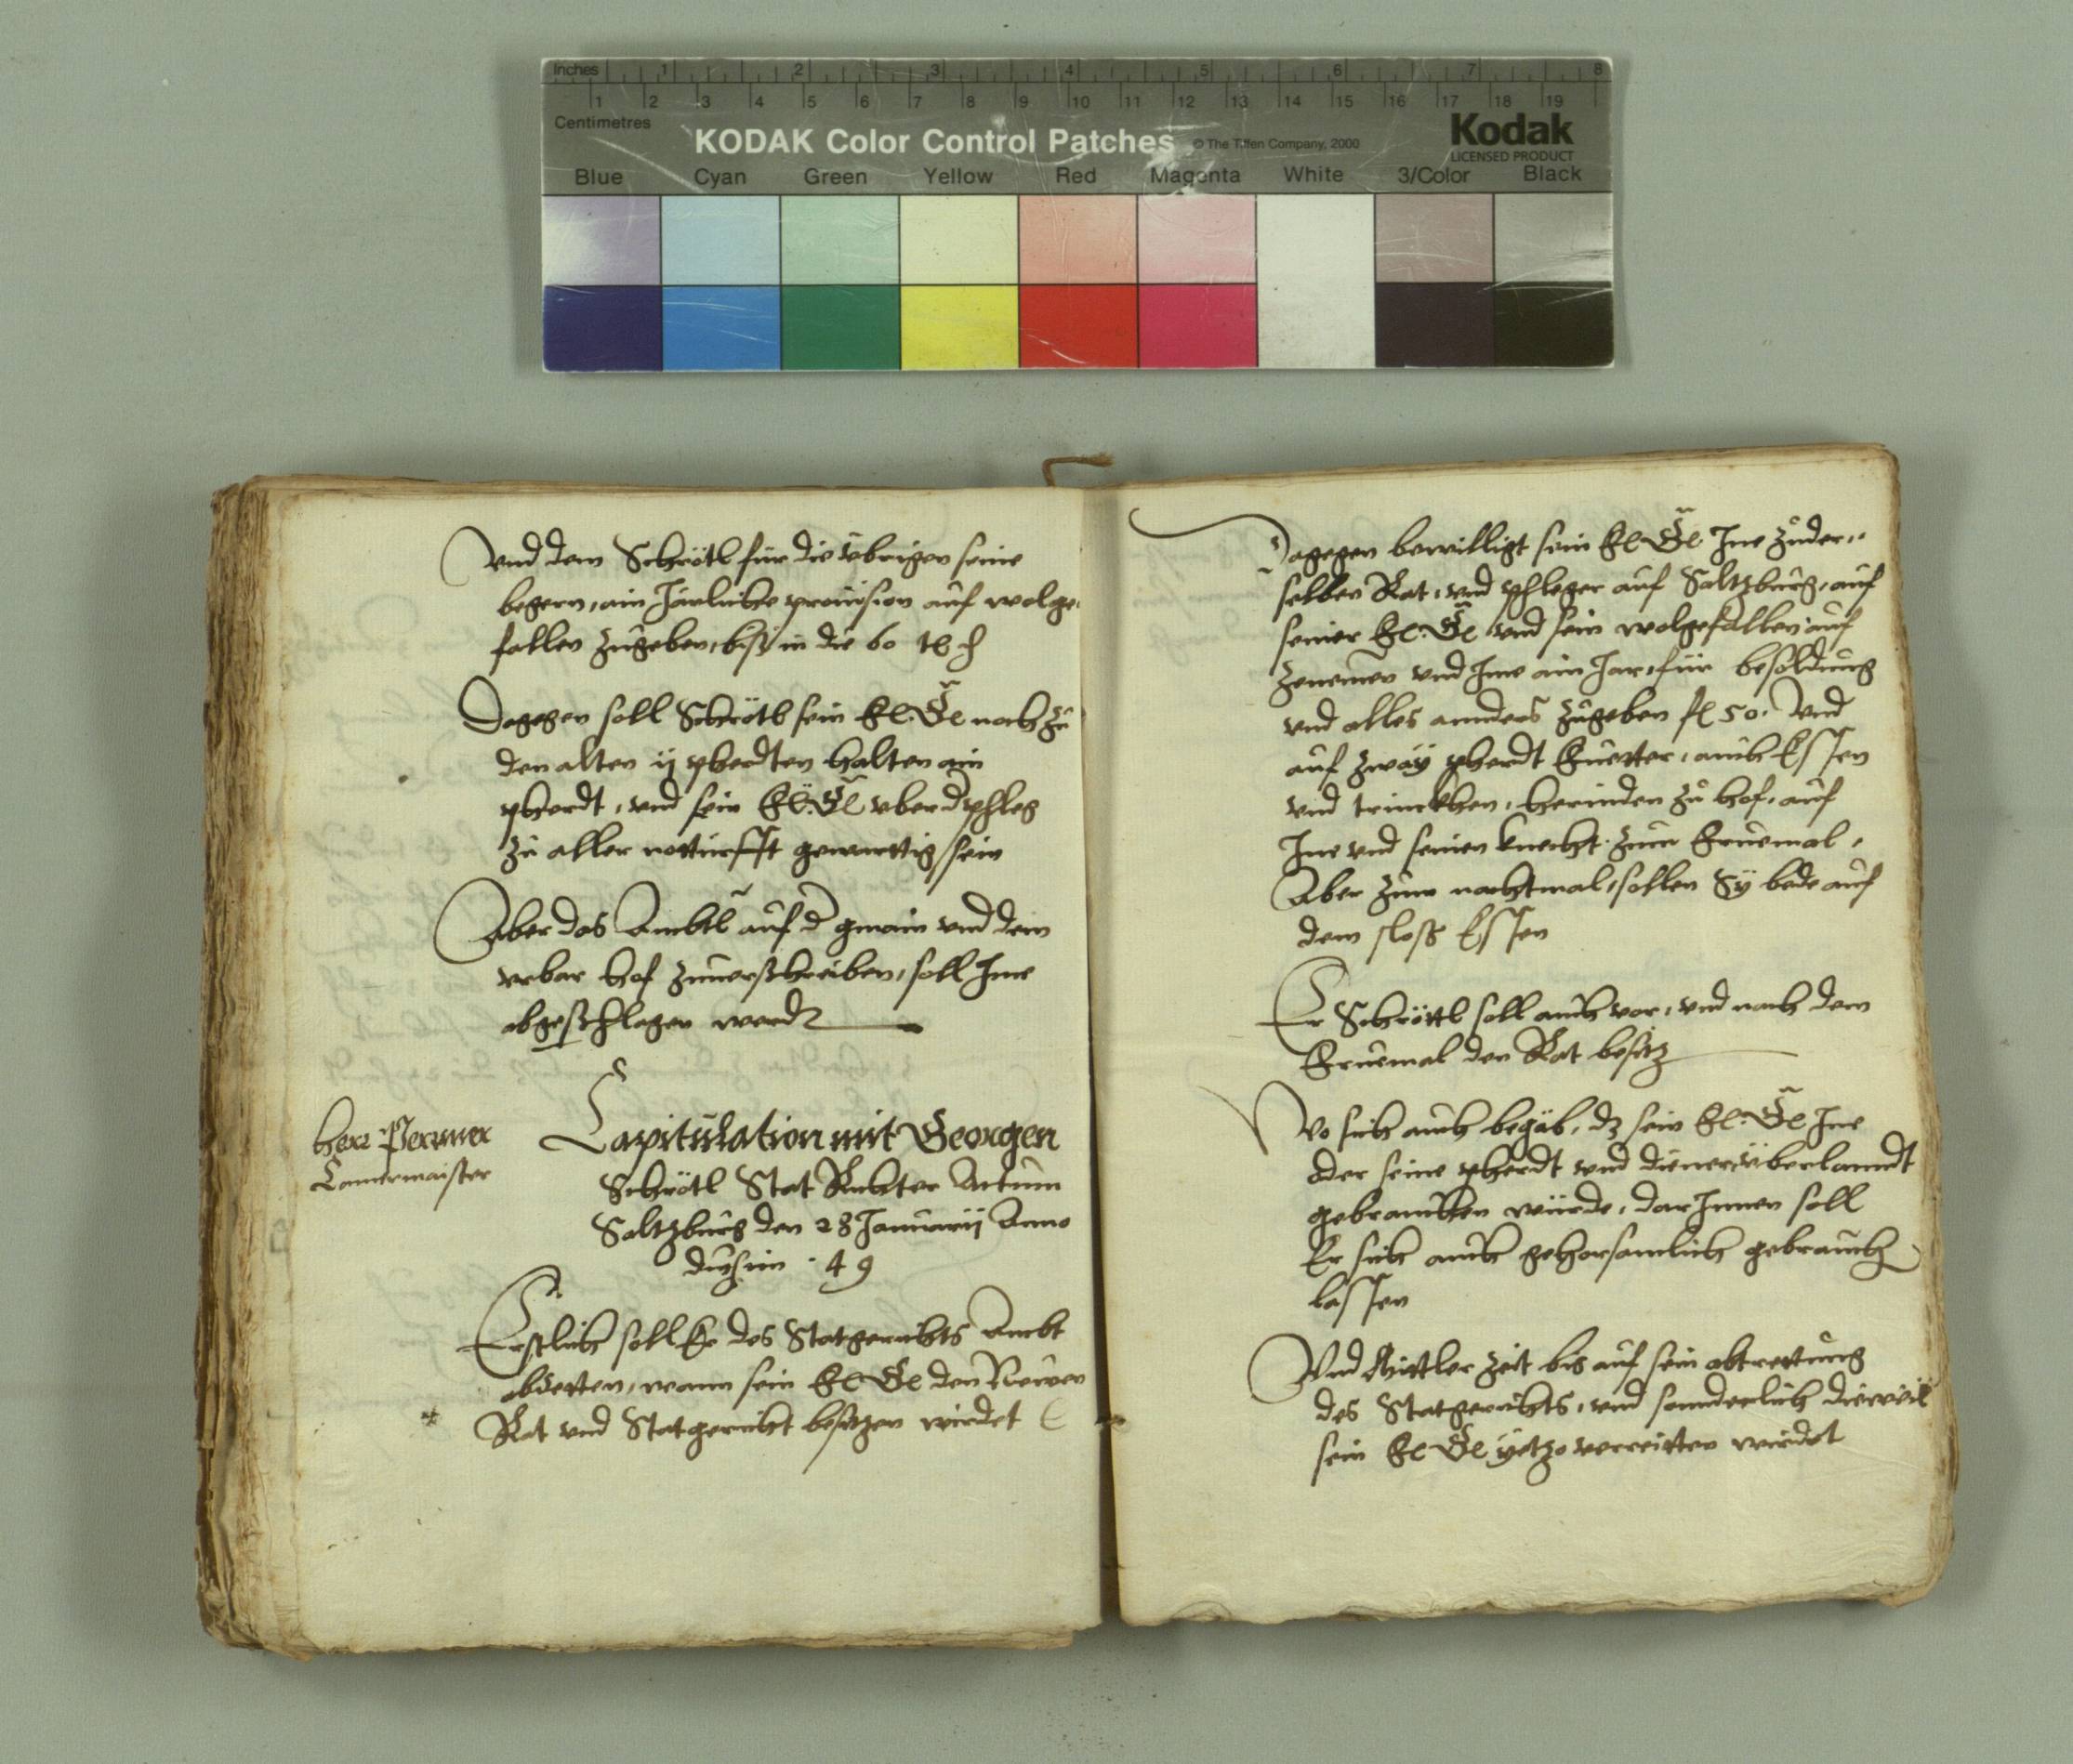 Inches 1 2 3 4 5 6 7 8
1 2 3 4 5 6 7 8 9 10 11 12 13 14 15 16 17 18 19
Centimetres
KODAK Color Control Patches © The Tiffen Company, 2000 Kodak
LICENSED PRODUCT
Blue Cyan Green Yellow Red Magenta White 3/Color Black
Vnd dem Schrötl für die übrigen seine
begern, ain Järliche prouision auf wolge
fallen zugeben, biß in die 60 lb d
Dagegen soll Schrötl sein Fl. Gl noch zu
den alten ij pherdten halten ain
pherdt, vnd sein Fl. Gl vber d phleg
zu aller notturfft gewarttig sein
Aber das Ambtl auf d gmain vnd dem
vrbar hof zuuerschreiben, soll Ime
abgeschlagen werdn
Herr Perner
Camermaister
Capitulation mit Georgen
Schrötl Stat Richter Actum
Saltzburg den 28 Januarij Anno
49
Erstlich soll Er des Statgerichts Ambt
abtretten, wann sein Fl Gl den Newen
Rat vnd Statgericht besetzen wirdet
Dagegen bewilligt sein Fl Gl Ine zu der
selben Rat, vnd phleger auf Saltzburg, auf
seiner Fl. Gl vnd sein wolgefallen auf
zenemen vnd Ime ain Jar, für besoldung
vnd alles annders zugeben fl 50. Vnd
auf zway pherdt Fuetter, auch Essen
vnd trinckhen, herinden zu hof, auf
Ine vnd seinen knecht zum Fruemal,
Aber zum nachtmal, sollen Sy bede auf
dem sloß Essen
Er Schröttl soll auch vor, vnd nach dem
Fruemal den Rat besitz
Wo sich auch begäb, dz sein Fl. Gl Ine
oder seine pherdt vnd diener vberlanndt
gebrauchen würde, dar Innen soll
Er sich auch gehorsamlich gebrauch
lassen
Vnd Mittler zeit bis auf sein abtrettung
des Statgerichts, vnd sonnderlich dieweil
sein Fl Gl yetzo verreitten wirdet